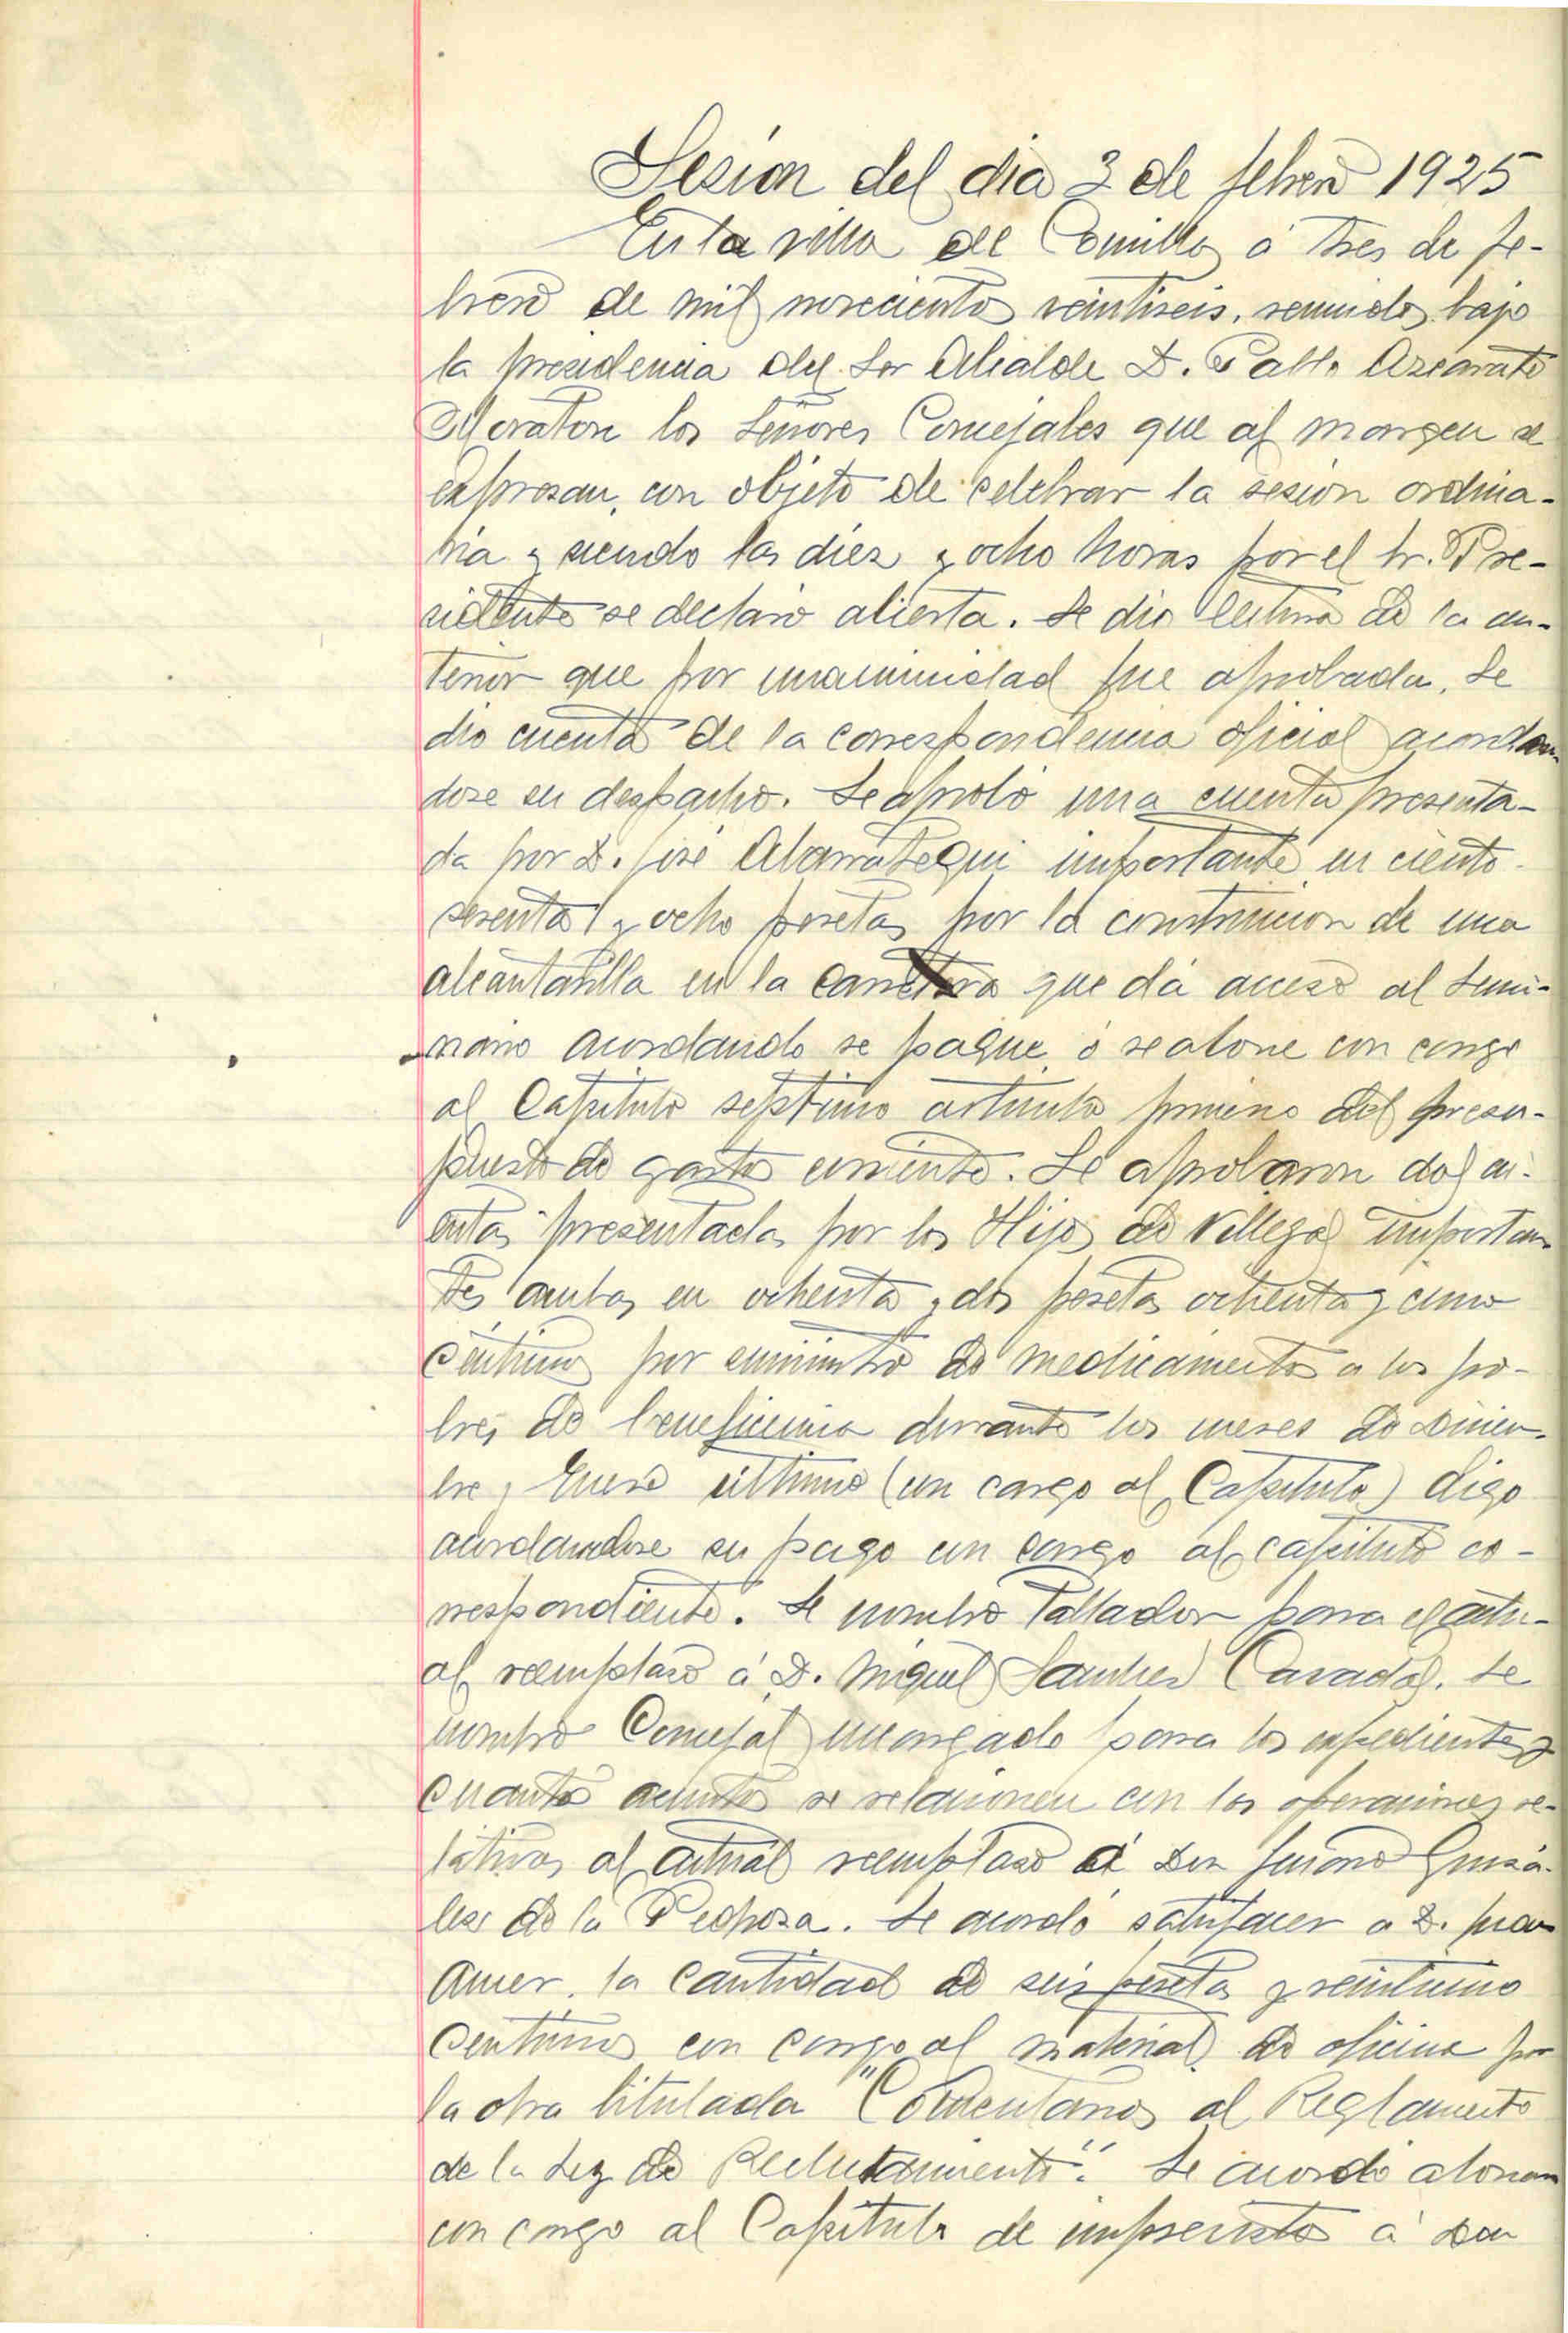 Sesión del dia 3 de febrero 1925
En la villa de Comillas á tres de fe-
brero de mil novecientos veintiseis, reunidos bajo
la presidencia del Sor Alcalde D. Pablo Azcarate
Moraton los Señores Concejales que al margen se
expresan, con objeto de celebrar la sesion ordina-
ria y siendo las diez y ocho horas por el Sr. Pre-
sidente se declaró abierta. Se dio lectura de la an-
terior que por unanimidad fue aprobada. Se
dio cuenta de la correspondencia oficial acordan-
dose su despacho. Se aprobó una cuenta presenta-
da por D. José Abarrategui importante en ciento
sesenta y ocho pesetas por la construccion de una
alcantarilla en la carretera que dá acceso al Semi-
nario acordando se pague ó se abone con cargo
al Capitulo septimo articulo primero del presu-
puesto de gastos corriente. Se aprobaron dos cu-
entas presentadas por los Hijos de Villegas importan-
tes ambas en ochenta y dos pesetas ochenta y cinco
centimos por suministro de medicamentos a los po-
bres de beneficencia durante los meses de Diciem-
bre y Enero último (con cargo al Capitulo) digo
acordandose su pago con cargo al capitulo co-
rrespondiente. Se nombro Tallador para el actu-
al reemplazo á D. Miguel Sanchez Cavada. Se
nombro Concejal encargado para los expedientes y
cuantos asuntos se relacionen con las operaciones re-
lativas al actual reemplazo á Don Gonzá-
lez de la Pedrosa. Se acordó satisfacer a D. Juan
Amer, la cantidad de seis pesetas y veinticinco
centimos con cargo al material de oficina por
la obra titulada "Comentarios al Reglamento
de la Ley de Reclutamiento". Se acordó abonar
con cargo al Capitulo de imprevistos á Don